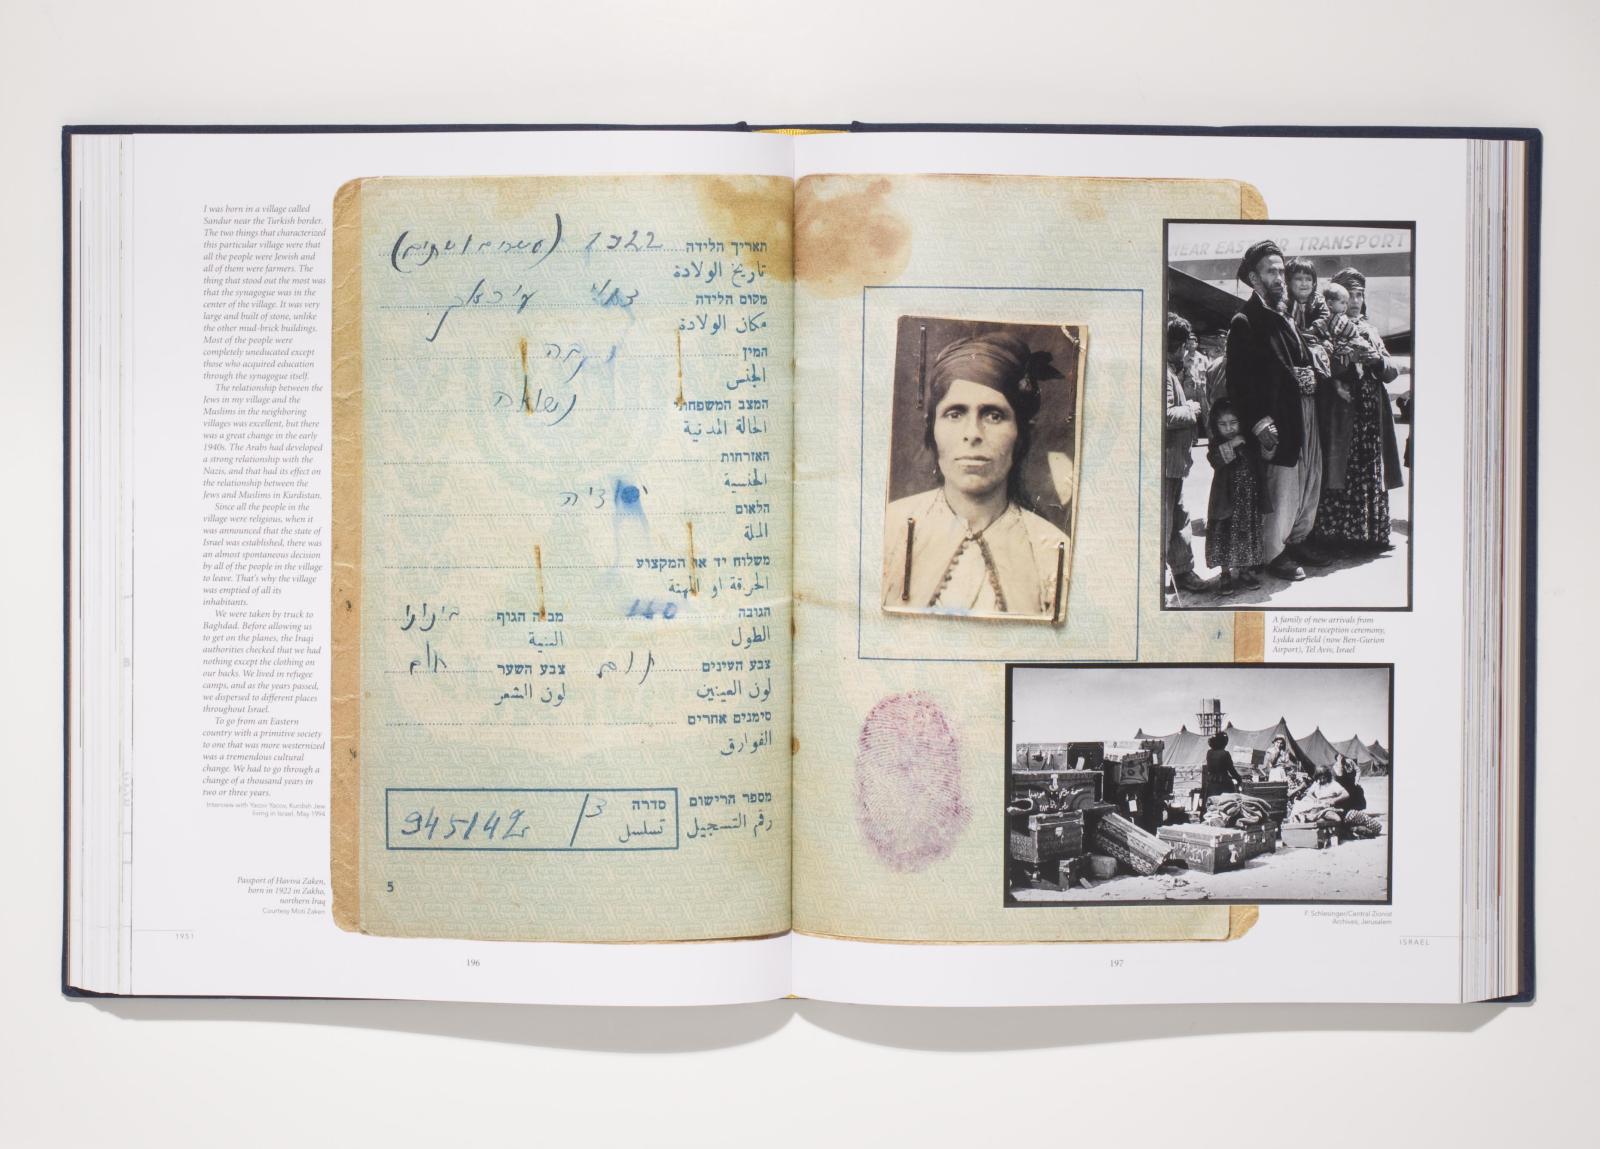 I was born in a village called
Sandur near the Turkish border.
The two things that characterized
this particular village were that
all the people were Jewish and
all of them were farmers. The
thing that stood out the most was
that the synagogue was in the
center of the village. It was very
large and built of stone, unlike
the other mud-brick buildings.
Most of the people were
completely uneducated except
those who acquired education
through the synagogue itself.
The relationship between the
Jews in my village and the
Muslims in the neighboring
villages was excellent, but there
was a great change in the early
1940s. The Arabs had developed
a strong relationship with the
Nazis, and that had its effect on
the relationship between the
Jews and Muslims in Kurdistan.
Since all the people in the
village were religious, when it
was announced that the state of
Israel was established, there was
an almost spontaneous decision
by all of the people in the village
to leave. That's why the village
was emptied of all its
inhabitants.
We were taken by truck to
Baghdad. Before allowing us
to get on the planes, the Iraqi
authorities checked that we had
nothing except the clothing on
our backs. We lived in refugee
camps, and as the years passed,
we dispersed to different places
throughout Israel.
To go from an Eastern
country with a primitive society
to one that was more westernized
was a tremendous cultural
change. We had to go through a
change of a thousand years in
two or three years.
Interview with Yacov Yacov, Kurdish Jew
living in Israel, May 1994
Passport of Haviva Zaken,
born in 1922 in Zakho,
northern Iraq
Courtesy Moti Zaken
1951
196
תאריך הלידה 1922 (עשרים ושתים)
تاريخ الولادة
מקום הלידה עיראק
مكان الولادة
המין
الجنس
המצב המשפחתי נשואה
الحالة المدنية
האזרחות
الجنسية
הלאום
الملة
משלוח יד או המקצוע
الحرفة او المهنة
הגובה 160 מבנה הגוף בינוני
الطول البنية
צבע העינים חום צבע השער חום
لون العينين لون الشعر
סימנים אחרים
الفوارق
מספר הרישום סדרה
رقم التسجيل تسلسل
945142
5
NEAR EAST AIR TRANSPORT
A family of new arrivals from
Kurdistan at reception ceremony,
Lydda airfield (now Ben-Gurion
Airport), Tel Aviv, Israel
F. Schlesinger/Central Zionist
Archives, Jerusalem
ISRAEL
197